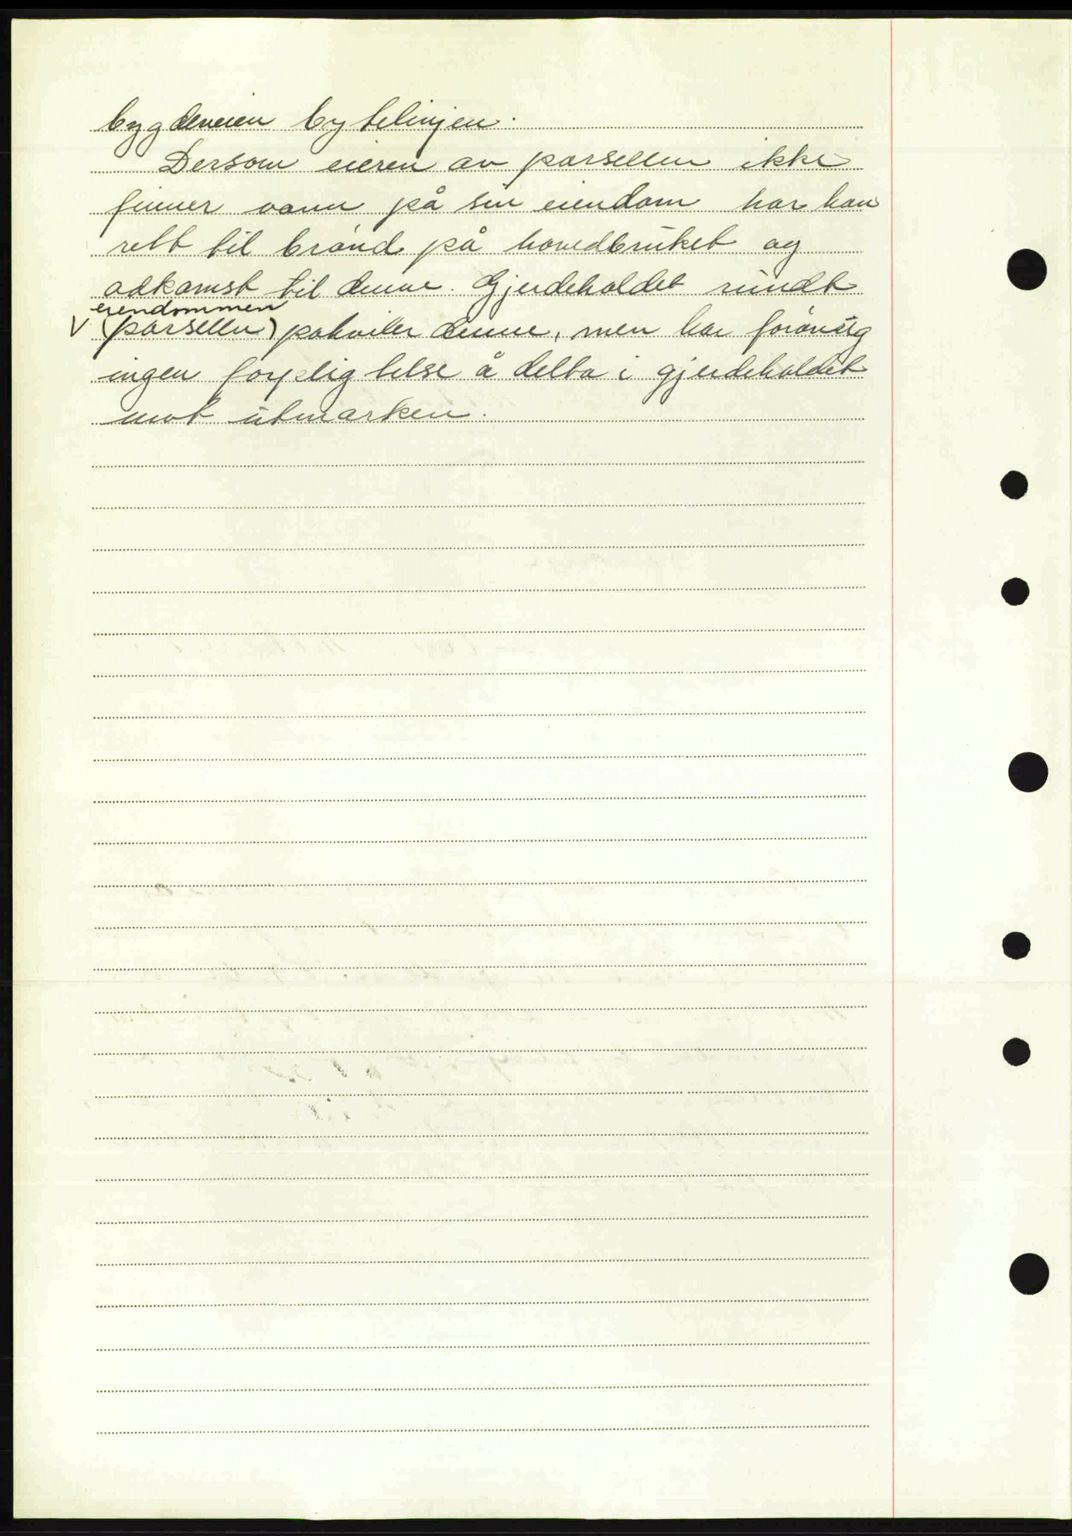 bygdeveien bytelinjen.
Dersom eieren av parsellen ikke
finner vann på sin eiendom har han
rett til brønd på hovedbruket og
adkomst til denne. Gjerdeholdet rundt
eiendommen
V (parsellen) påhviler denne, men har forøvrig
ingen forpligtelse å delta i gjerdeholdet
mot utmarken.